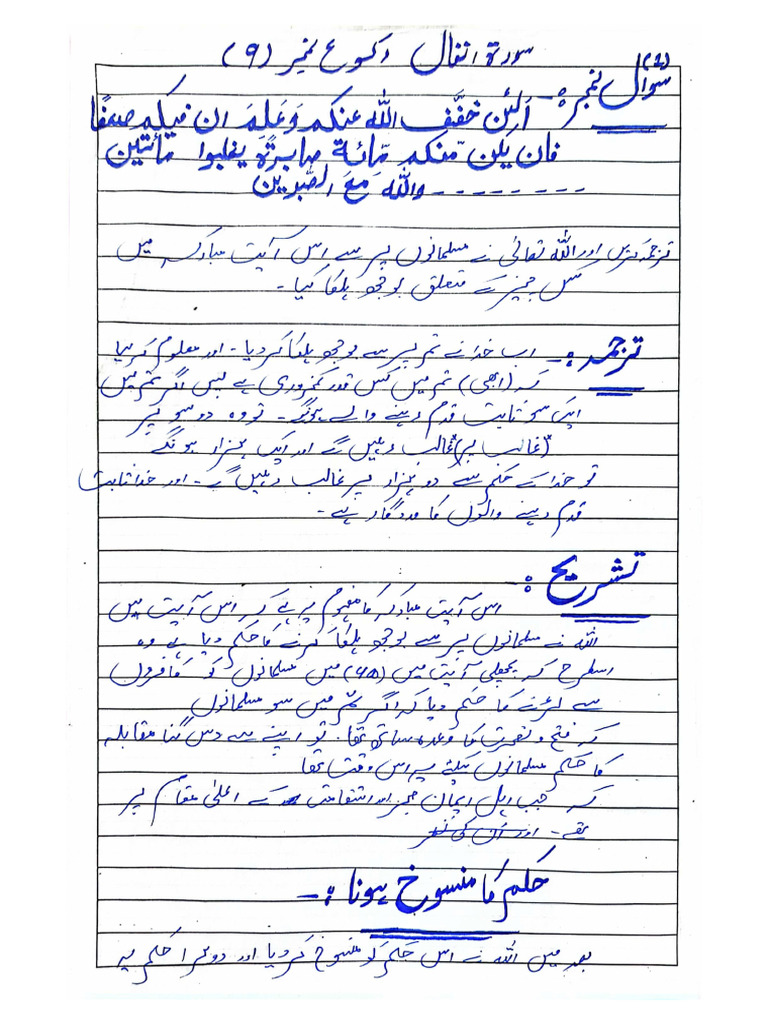 سورۃ انفال رکوع نمبر (۹)
سوال نمبر (1)
اَلْئٰنَ خَفَّفَ اللّٰه عنکم وَعَلِمَ ان فیکم ضعفًا
فان یکن منکم مّائة صابرةٌ یغلبوا مائتین
--------- واللّٰه مَعَ الصّٰبرین
ترجمہ کریں اور اللّٰه تعالیٰ نے مسلمانوں پر سے اس آیت مبارکہ میں
کس چیز کے متعلق بوجھ ہلکا کیا۔
ترجمہ:۔ اب خدا نے تم پر سے بوجھ ہلکا کر دیا۔ اور معلوم کر لیا
کہ (ابھی) تم میں کس قدر کمزوری ہے پس اگر تم میں
ایک سو ثابت قدم رہنے والے ہونگے۔ تو وہ دو سو پر
(غالب پر) غالب رہیں گے اور ایک ہزار ہونگے
تو خدا کے حکم سے دو ہزار پر غالب رہیں گے۔ اور خدا ثابت
قدم رہنے والوں کا مددگار ہے۔
تشریح:
اس آیت مبارکہ کا مفہوم یہ ہے کہ اس آیت میں
اللّٰه نے مسلمانوں پر سے بوجھ ہلکا کرنے کا حکم دیا ہے وہ
اسطرح کہ پچھلی آیت میں (۶۵) میں مسلمانوں کو کافروں
سے لڑنے کا حکم دیا کہ اگر تم میں سو مسلمانوں
کہ فتح و نصرت کا وعدہ ساتھ تھا۔ تو اپنے سے دس گنا مقابلہ
کا حکم مسلمانوں کیلئے یہ اس وقت تھا
کہ جب اہل ایمان استقامت کے اعلیٰ مقام پر
تھے۔ اور ان کی
حکم کا منسوخ ہونا:۔
بعد میں اللّٰه نے اس حکم کو منسوخ کر دیا اور دوسرا حکم یہ